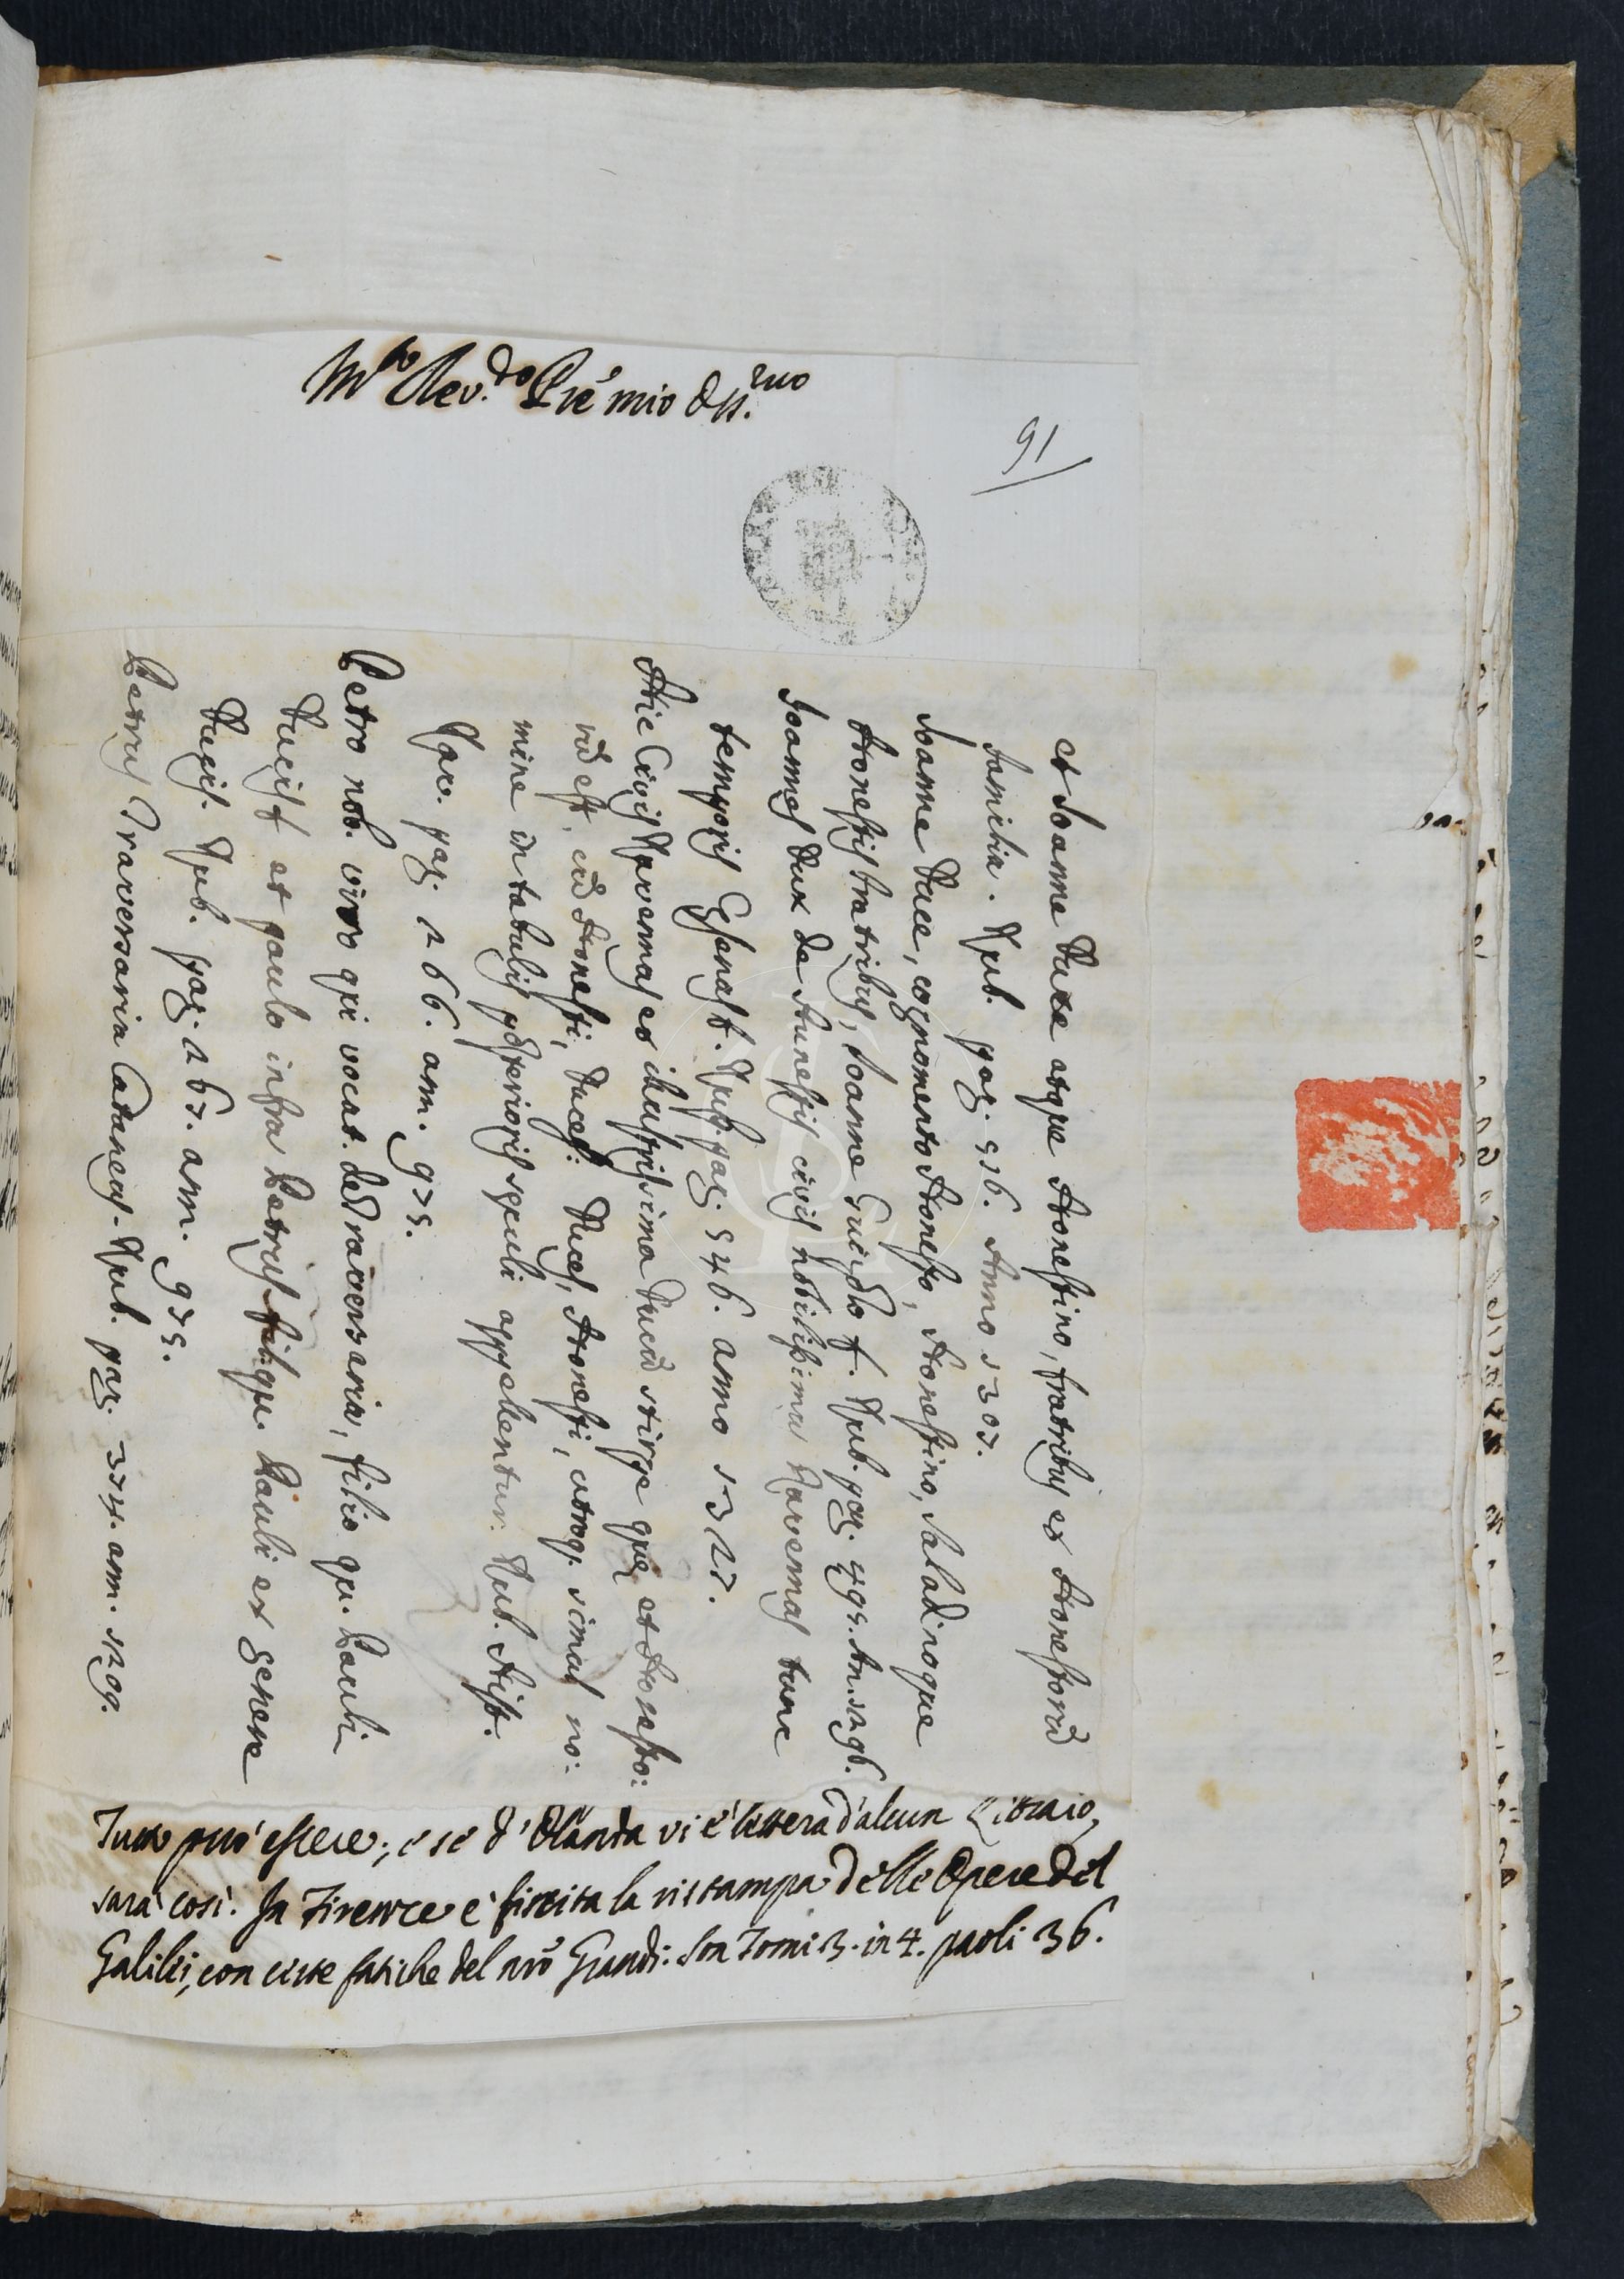 M.to Rev.do Prē mio Oss.mo
91
et Joanne Duce atque Honestino, fratribus ex Honestorū
familia. Rub. pag. 516. Anno 1307.
Joanne Duce, cognomento Honesto, Honestino, Saladinoque
Honestis fratribus, Joanne Guidō f. Rub. pag. 495. An. 1296.
Joannes Dux de Hunestis civis nobilissimus Ravennas tunc
temporis Cesenas f. Rub. pag. 546. anno 1327.
Hic Civis Ravennas ex illustrissima Ducū stirpe quę et Honesto:
rū est, cū Honesti, Duces: Duces, Honesti, utroq. simul no:
mine in tabulis posterioris seculi appellentur. Rub. Hist.
Rav. pag. 266. ann. 975.
Petro nob. viro qui vocat. de Traversaria, filio qu. Pauli
Ducis f et paulo infra Petrus filiqu. Pauli ex genere
Ducis. Rub. pag. 267. ann. 975.
Petrus Traversaria Cataneus. Rub. pag. 374. ann. 1209.
Tutto può essere; e se d'Olanda vi è lettera d'alcun Libraio,
sarà così. In Firenze è finita la ristampa delle Opere del
Galilei, con certe fatiche del nrō Grandi. Son Tomi 3. in 4. paoli 36.